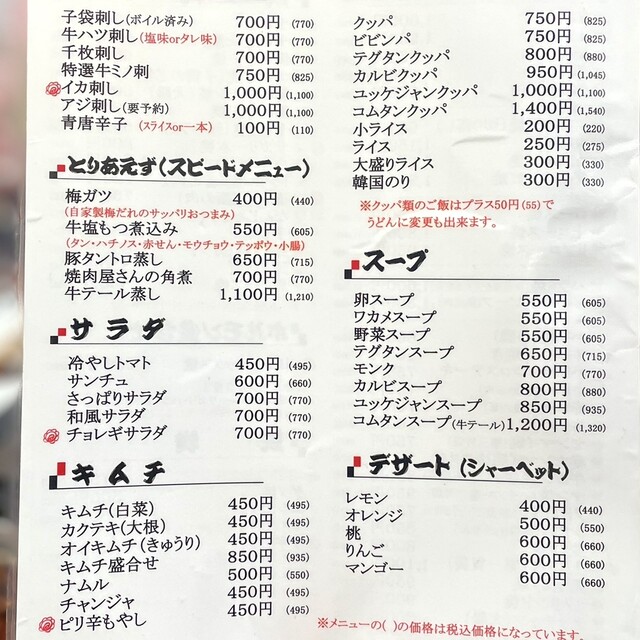 子袋刺し(ボイル済み) 700円 (770)
牛ハツ刺し(塩味orタレ味) 700円 (770)
千枚刺し 700円 (770)
特選牛ミノ刺 750円 (825)
イカ刺し 1,000円 (1,100)
アジ刺し(要予約) 1,000円 (1,100)
青唐辛子(スライスor一本) 100円 (110)
とりあえず(スピードメニュー)
梅ガツ 400円 (440)
(自家製梅だれのサッパリおつまみ)
牛塩もつ煮込み 550円 (605)
(タン・ハチノス・赤せん・モウチョウ・テッポウ・小腸)
豚タントロ蒸し 650円 (715)
焼肉屋さんの角煮 700円 (770)
牛テール蒸し 1,100円 (1,210)
サラダ
冷やしトマト 450円 (495)
サンチュ 600円 (660)
さっぱりサラダ 700円 (770)
和風サラダ 700円 (770)
チョレギサラダ 700円 (770)
キムチ
キムチ(白菜) 450円 (495)
カクテキ(大根) 450円 (495)
オイキムチ(きゅうり) 450円 (495)
キムチ盛合せ 850円 (935)
ナムル 500円 (550)
チャンジャ 450円 (495)
ピリ辛もやし 450円 (495)
クッパ 750円 (825)
ビビンパ 750円 (825)
テグタンクッパ 800円 (880)
カルビクッパ 950円 (1,045)
ユッケジャンクッパ 1,000円 (1,100)
コムタンクッパ 1,400円 (1,540)
小ライス 200円 (220)
ライス 250円 (275)
大盛りライス 300円 (330)
韓国のり 300円 (330)
※クッパ類のご飯はプラス50円(55)で
うどんに変更も出来ます。
スープ
卵スープ 550円 (605)
ワカメスープ 550円 (605)
野菜スープ 550円 (605)
テグタンスープ 650円 (715)
モンク 700円 (770)
カルビスープ 800円 (880)
ユッケジャンスープ 850円 (935)
コムタンスープ(牛テール) 1,200円 (1,320)
デザート(シャーベット)
レモン 400円 (440)
オレンジ 500円 (550)
桃 600円 (660)
りんご 600円 (660)
マンゴー 600円 (660)
※メニューの( )の価格は税込価格になっています。